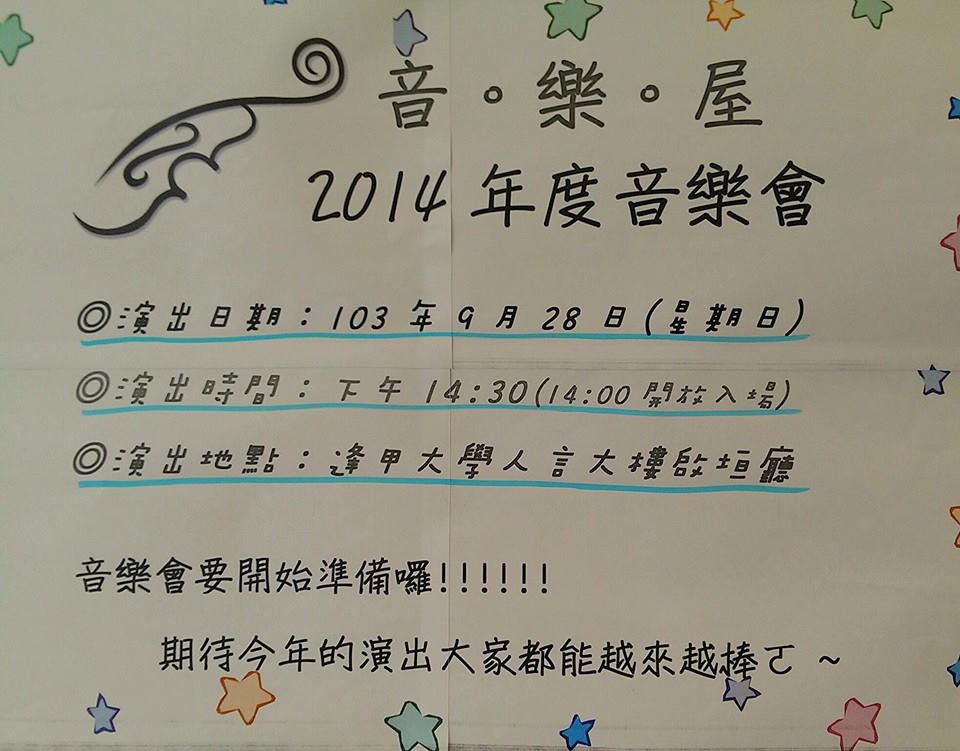 音。樂。屋
2014年度音樂會
◎演出日期：103年9月28日(星期日)
◎演出時間：下午14:30(14:00開放入場)
◎演出地點：逢甲大學人言大樓啟垣廳
音樂會要開始準備囉!!!!!!
期待今年的演出大家都能越來越捧ㄛ~